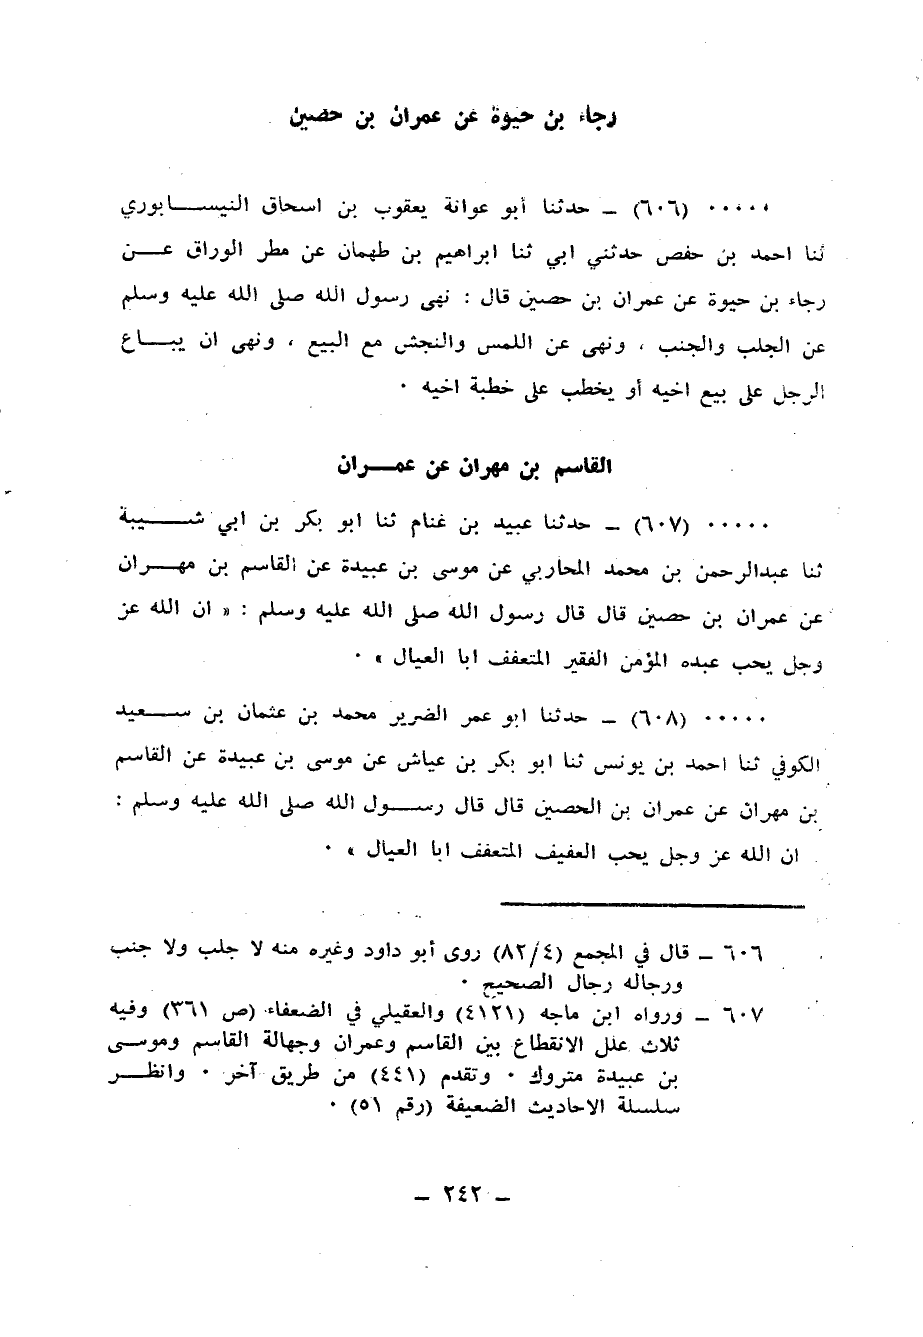 رجاء بن حيوة عن عمران بن حصين
..... (٦٠٦) ــ حدثنا أبو عوانة يعقوب بن اسحاق النيســـابوري
ثنا احمد بن حفص حدثني ابي ثنا ابراهيم بن طهمان عن مطر الوراق عـــن
رجاء بن حيوة عن عمران بن حصين قال : نهى رسول الله صلى الله عليه وسلم
عن الجلب والجنب ، ونهى عن اللمس والنجش مع البيع ، ونهى ان يبـــاع
الرجل على بيع اخيه أو يخطب على خطبة اخيه .
القاسم بن مهران عن عمـــران
..... (٦٠٧) ــ حدثنا عبيد بن غنام ثنا ابو بكر بن ابي شـــيبة
ثنا عبدالرحمن بن محمد المحاربي عن موسى بن عبيدة عن القاسم بن مهـــران
عن عمران بن حصين قال قال رسول الله صلى الله عليه وسلم : « ان الله عز
وجل يحب عبده المؤمن الفقير المتعفف ابا العيال » .
..... (٦٠٨) ــ حدثنا ابو عمر الضرير محمد بن عثمان بن ســـعيد
الكوفي ثنا احمد بن يونس ثنا ابو بكر بن عياش عن موسى بن عبيدة عن القاسم
بن مهران عن عمران بن الحصين قال قال رســـول الله صلى الله عليه وسلم :
ان الله عز وجل يحب العفيف المتعفف ابا العيال » .
٦٠٦ ــ قال في المجمع (٨٢/٤) روى أبو داود وغيره منه لا جلب ولا جنب
ورجاله رجال الصحيح .
٦٠٧ ــ ورواه ابن ماجه (٤١٢١) والعقيلي في الضعفاء (ص ٣٦١) وفيه
ثلاث علل الانقطاع بين القاسم وعمران وجهالة القاسم وموســـى
بن عبيدة متروك . وتقدم (٤٤١) من طريق آخر . وانظـــر
سلسلة الاحاديث الضعيفة (رقم ٥١) .
ــ ٢٤٢ ــ